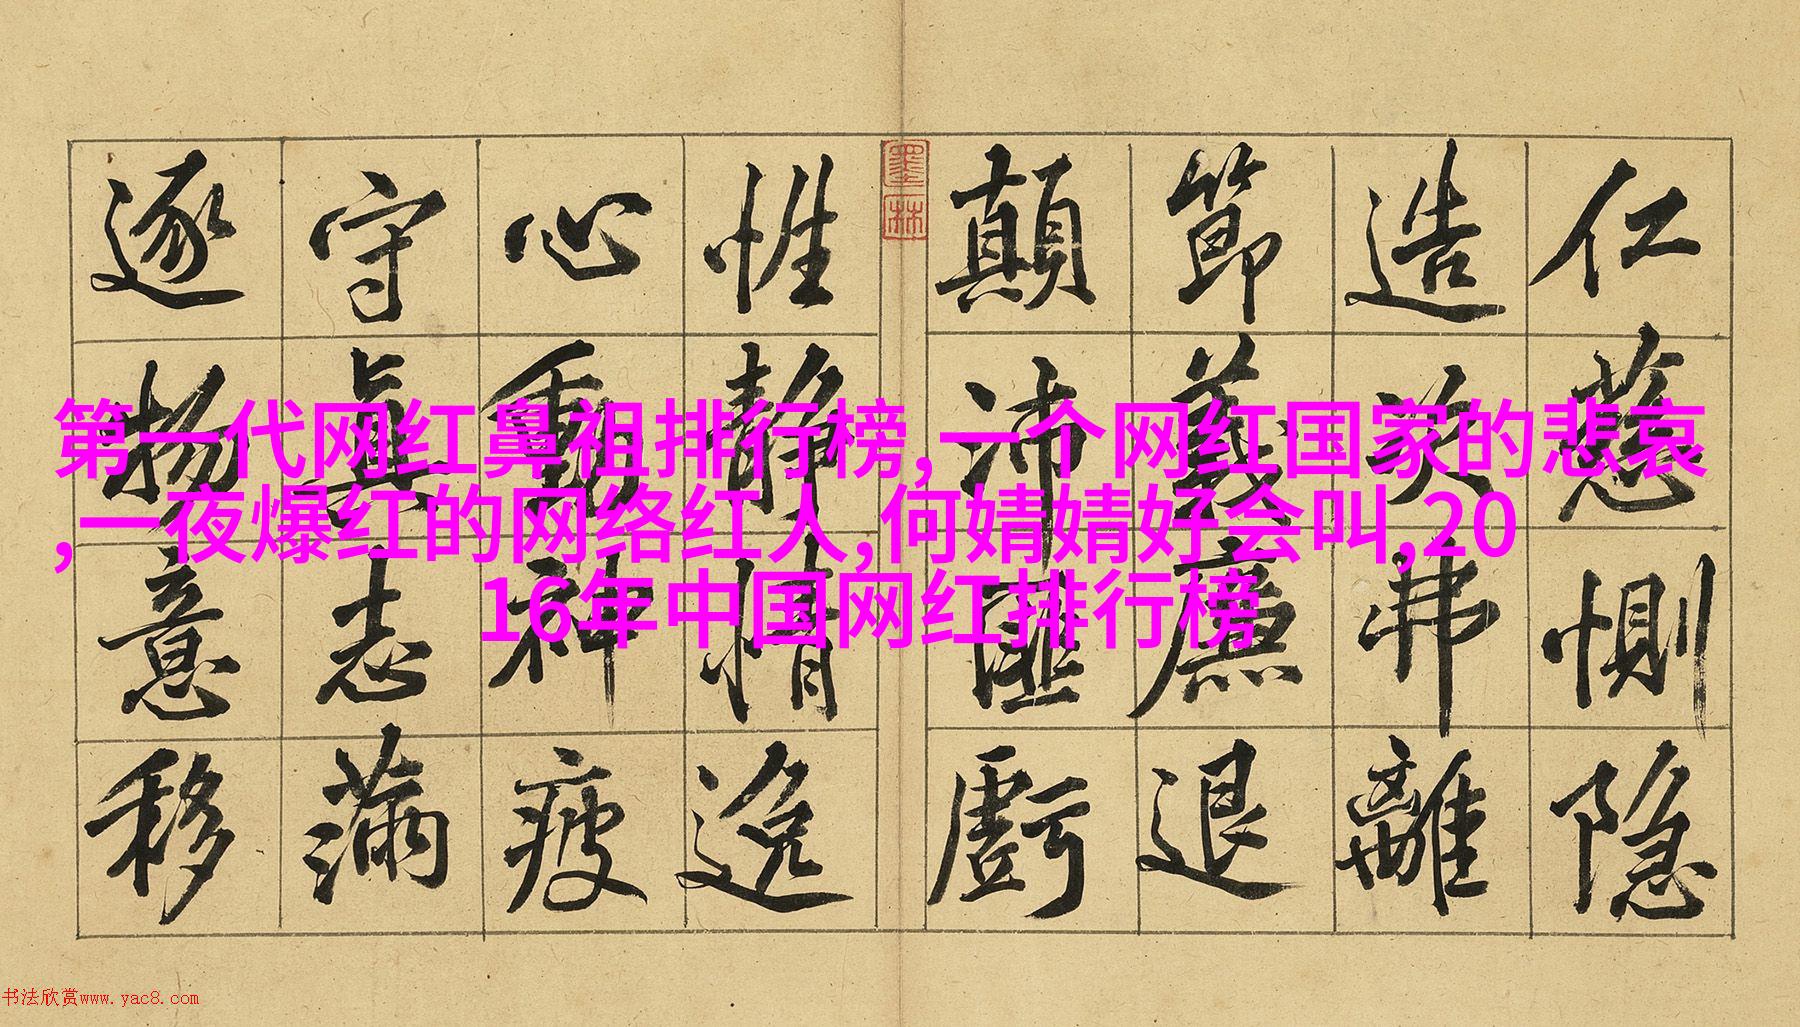 仁慈惻隐
造次弗離
節義廉退
顛沛匪虧
墨林
性靜情逸
心動神疲
守真志滿
逐物意移
第一代网红鼻祖排行榜,一个网红国家的悲哀
,一夜爆红的网络红人,何婧婧好会叫,20
16年中国网红排行榜
书法欣赏www.yac8.com